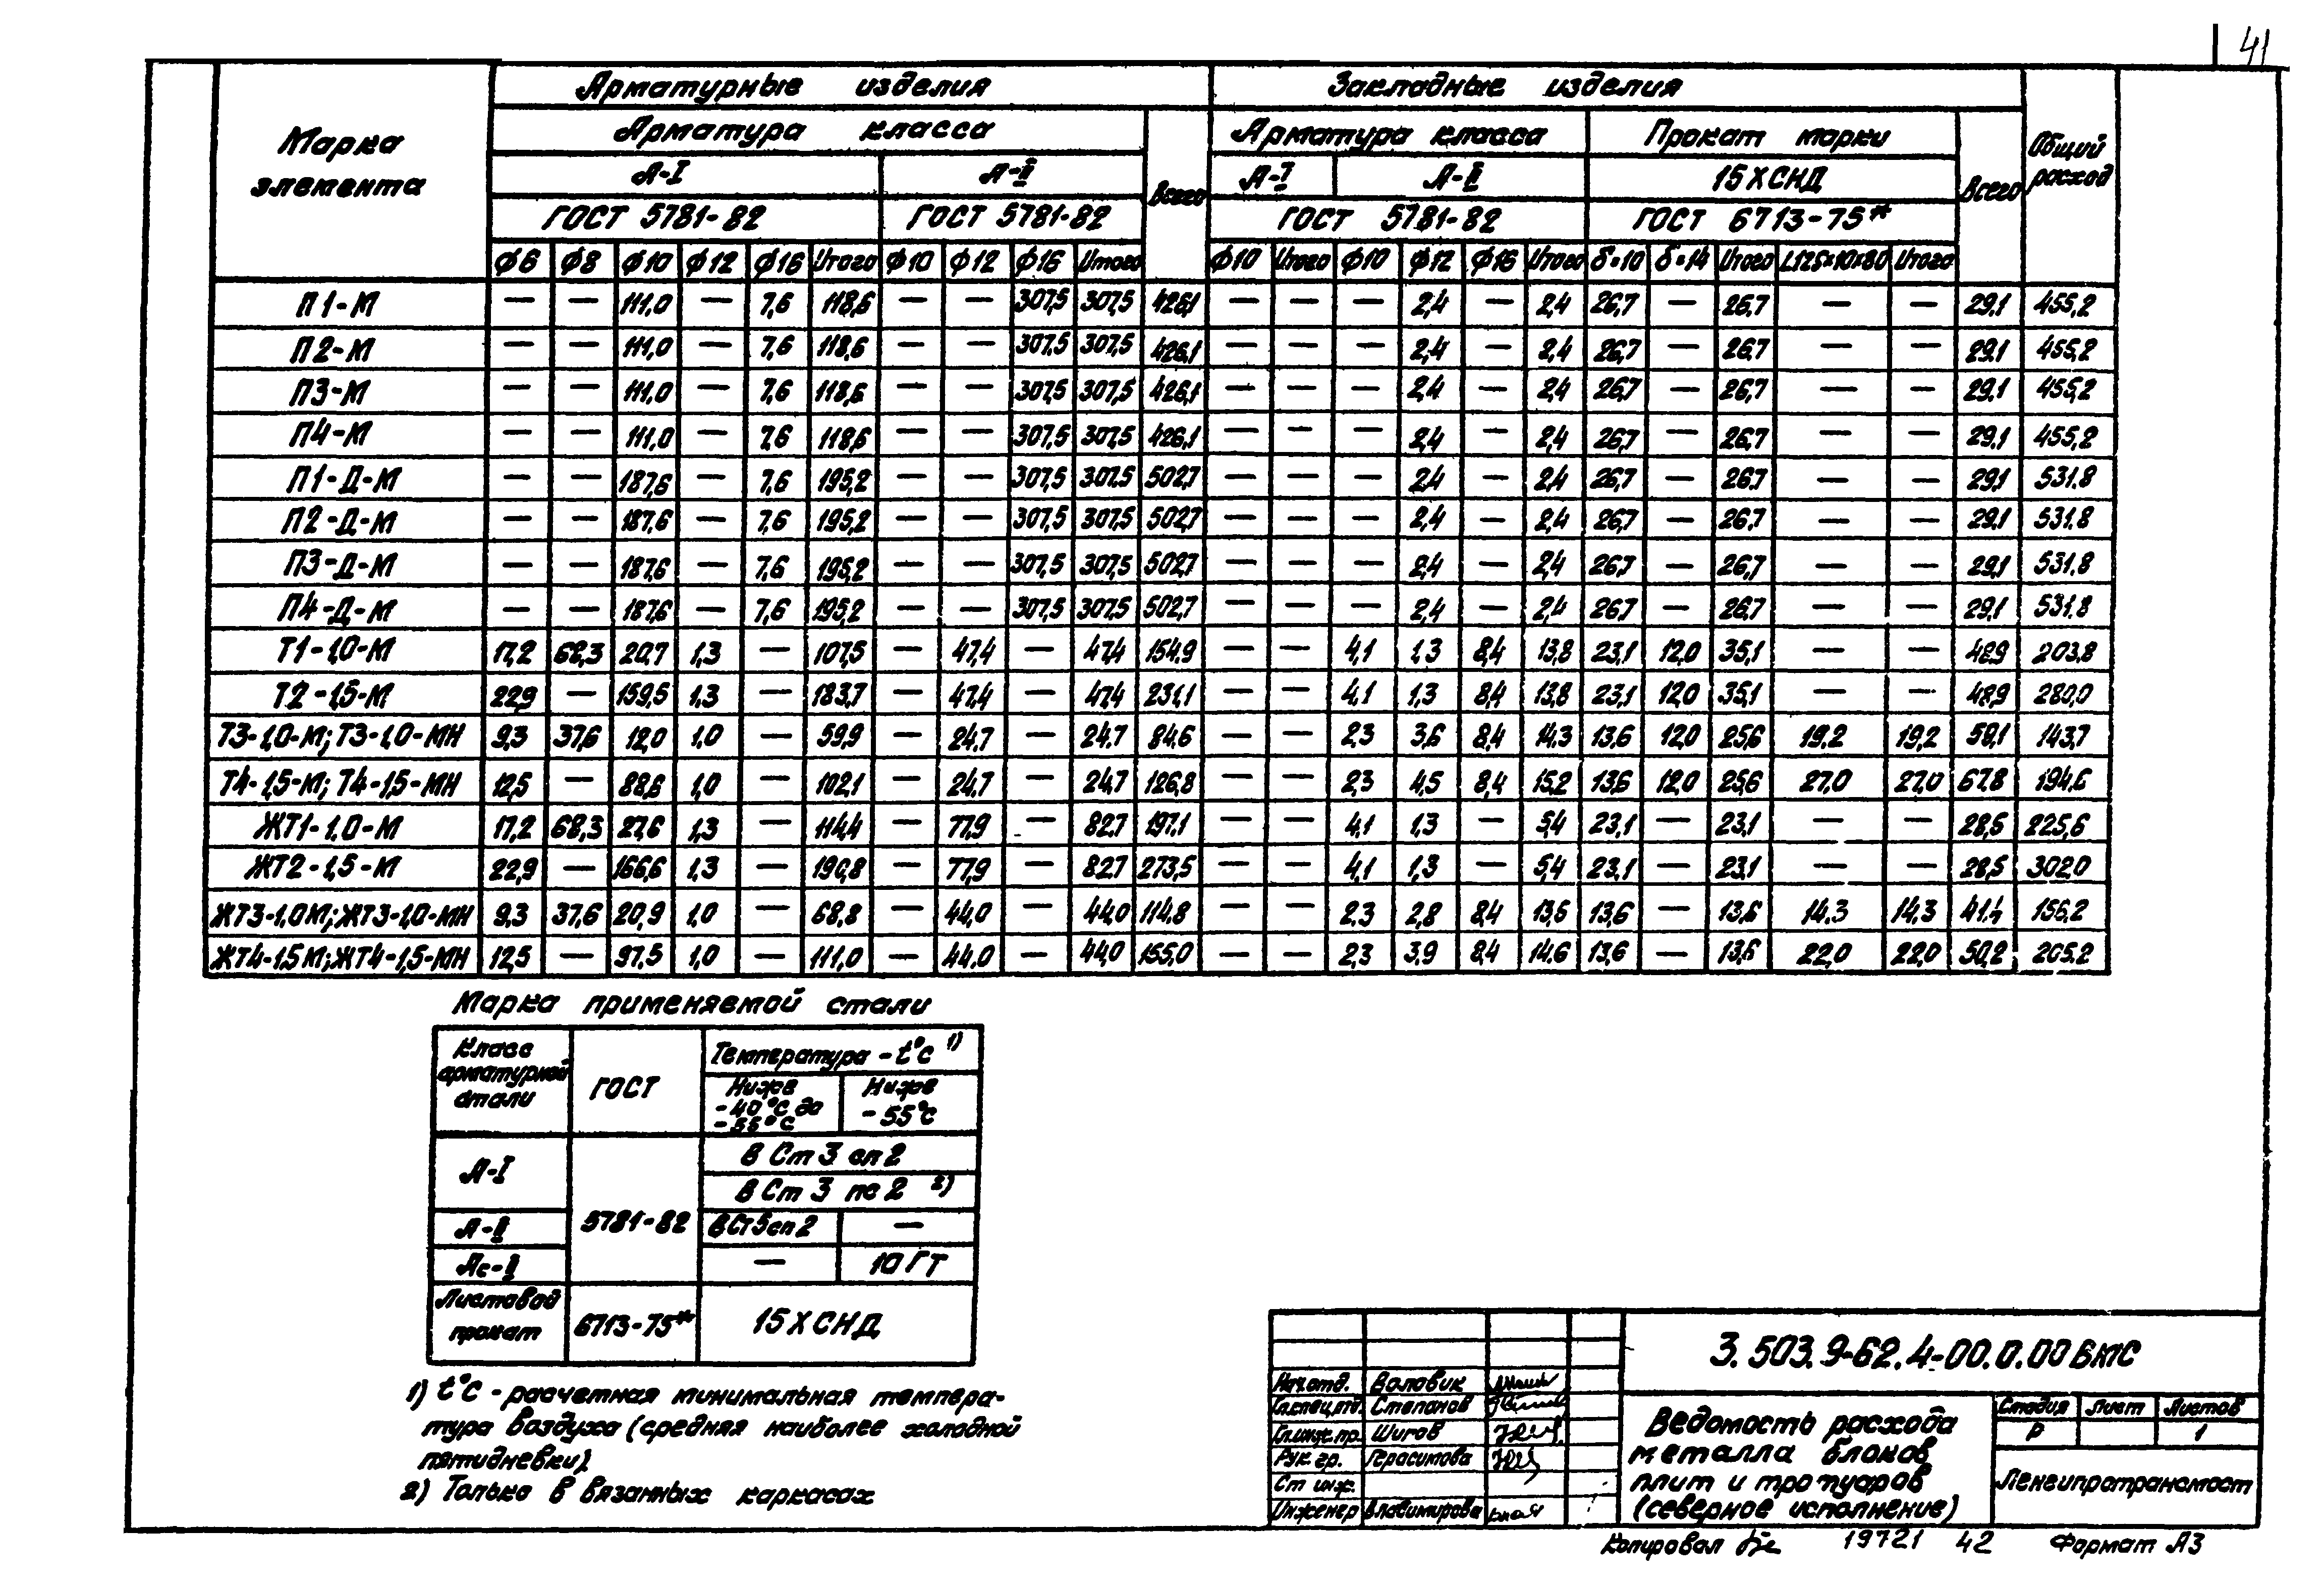 41
Марка элемента Арматурные изделия Закладные изделия Общий расход
Арматура класса Всего Арматура класса Прокат марки Всего
А-I А-II А-I А-II 15ХСНД
ГОСТ 5781-82 ГОСТ 5781-82 ГОСТ 5781-82 ГОСТ 6713-75*
ф6 ф8 ф10 ф12 ф16 Итого ф10 ф12 ф16 Итого ф10 Итого ф10 ф12 ф16 Итого δ=10 δ=14 Итого L125×10×80 Итого
П1-М — — 111,0 — 7,6 118,6 — — 307,5 307,5 426,1 — — — 2,4 — 2,4 26,7 — 26,7 — — 29,1 455,2
П2-М — — 111,0 — 7,6 118,6 — — 307,5 307,5 426,1 — — — 2,4 — 2,4 26,7 — 26,7 — — 29,1 455,2
П3-М — — 111,0 — 7,6 118,6 — — 307,5 307,5 426,1 — — — 2,4 — 2,4 26,7 — 26,7 — — 29,1 455,2
П4-М — — 111,0 — 7,6 118,6 — — 307,5 307,5 426,1 — — — 2,4 — 2,4 26,7 — 26,7 — — 29,1 455,2
П1-Д-М — — 187,6 — 7,6 195,2 — — 307,5 307,5 502,7 — — — 2,4 — 2,4 26,7 — 26,7 — — 29,1 531,8
П2-Д-М — — 187,6 — 7,6 195,2 — — 307,5 307,5 502,7 — — — 2,4 — 2,4 26,7 — 26,7 — — 29,1 531,8
П3-Д-М — — 187,6 — 7,6 195,2 — — 307,5 307,5 502,7 — — — 2,4 — 2,4 26,7 — 26,7 — — 29,1 531,8
П4-Д-М — — 187,6 — 7,6 195,2 — — 307,5 307,5 502,7 — — — 2,4 — 2,4 26,7 — 26,7 — — 29,1 531,8
Т1-1,0-М 17,2 68,3 20,7 1,3 — 107,5 — 47,4 — 47,4 154,9 — — 4,1 1,3 8,4 13,8 23,1 12,0 35,1 — — 48,9 203,8
Т2-1,5-М 22,9 — 159,5 1,3 — 183,7 — 47,4 — 47,4 231,1 — — 4,1 1,3 8,4 13,8 23,1 12,0 35,1 — — 48,9 280,0
Т3-1,0-М; Т3-1,0-МН 9,3 37,6 12,0 1,0 — 59,9 — 24,7 — 24,7 84,6 — — 2,3 3,6 8,4 14,3 13,6 12,0 25,6 19,2 19,2 59,1 143,7
Т4-1,5-М; Т4-1,5-МН 12,5 — 88,6 1,0 — 102,1 — 24,7 — 24,7 126,8 — — 2,3 4,5 8,4 15,2 13,6 12,0 25,6 27,0 27,0 67,8 194,6
ЖТ1-1,0-М 17,2 68,3 27,6 1,3 — 114,4 — 77,9 — 82,7 197,1 — — 4,1 1,3 — 5,4 23,1 — 23,1 — — 28,5 225,6
ЖТ2-1,5-М 22,9 — 166,6 1,3 — 190,8 — 77,9 — 82,7 273,5 — — 4,1 1,3 — 5,4 23,1 — 23,1 — — 28,5 302,0
ЖТ3-1,0М; ЖТ3-1,0-МН 9,3 37,6 20,9 1,0 — 68,8 — 44,0 — 44,0 114,8 — — 2,3 2,8 8,4 13,5 13,6 — 13,6 14,3 14,3 41,4 156,2
ЖТ4-1,5М; ЖТ4-1,5-МН 12,5 — 97,5 1,0 — 111,0 — 44,0 — 44,0 155,0 — — 2,3 3,9 8,4 14,6 13,6 — 13,6 22,0 22,0 50,2 205,2
Марка применяемой стали
Класс арматурной стали ГОСТ Температура - t°С 1)
Ниже -40°С до -55°С Ниже -55°С
А-I 5781-82 В Ст 3 сп 2
В Ст 3 пс 2 2)
А-II ВСт5сп2 —
Ас-II — 10 ГТ
Листовой прокат 6713-75* 15ХСНД
1) t°С - расчетная минимальная темпера-
тура воздуха (средняя наиболее холодной
пятидневки).
2) Только в вязанных каркасах
3.503.9-62.4-00.0.00 ВМС
Нач.отд. Воловик
Гл.спец.отд. Степанов
Гл.инж.пр. Шигов
Рук. гр. Герасимова
Ст инж.
Инженер Владимирова
Ведомость расхода
металла блоков
плит и тротуаров
(северное исполнение)
Стадия Лист Листов
Р 1
Ленгипротрансмост
Копировал 19721 42 Формат А3